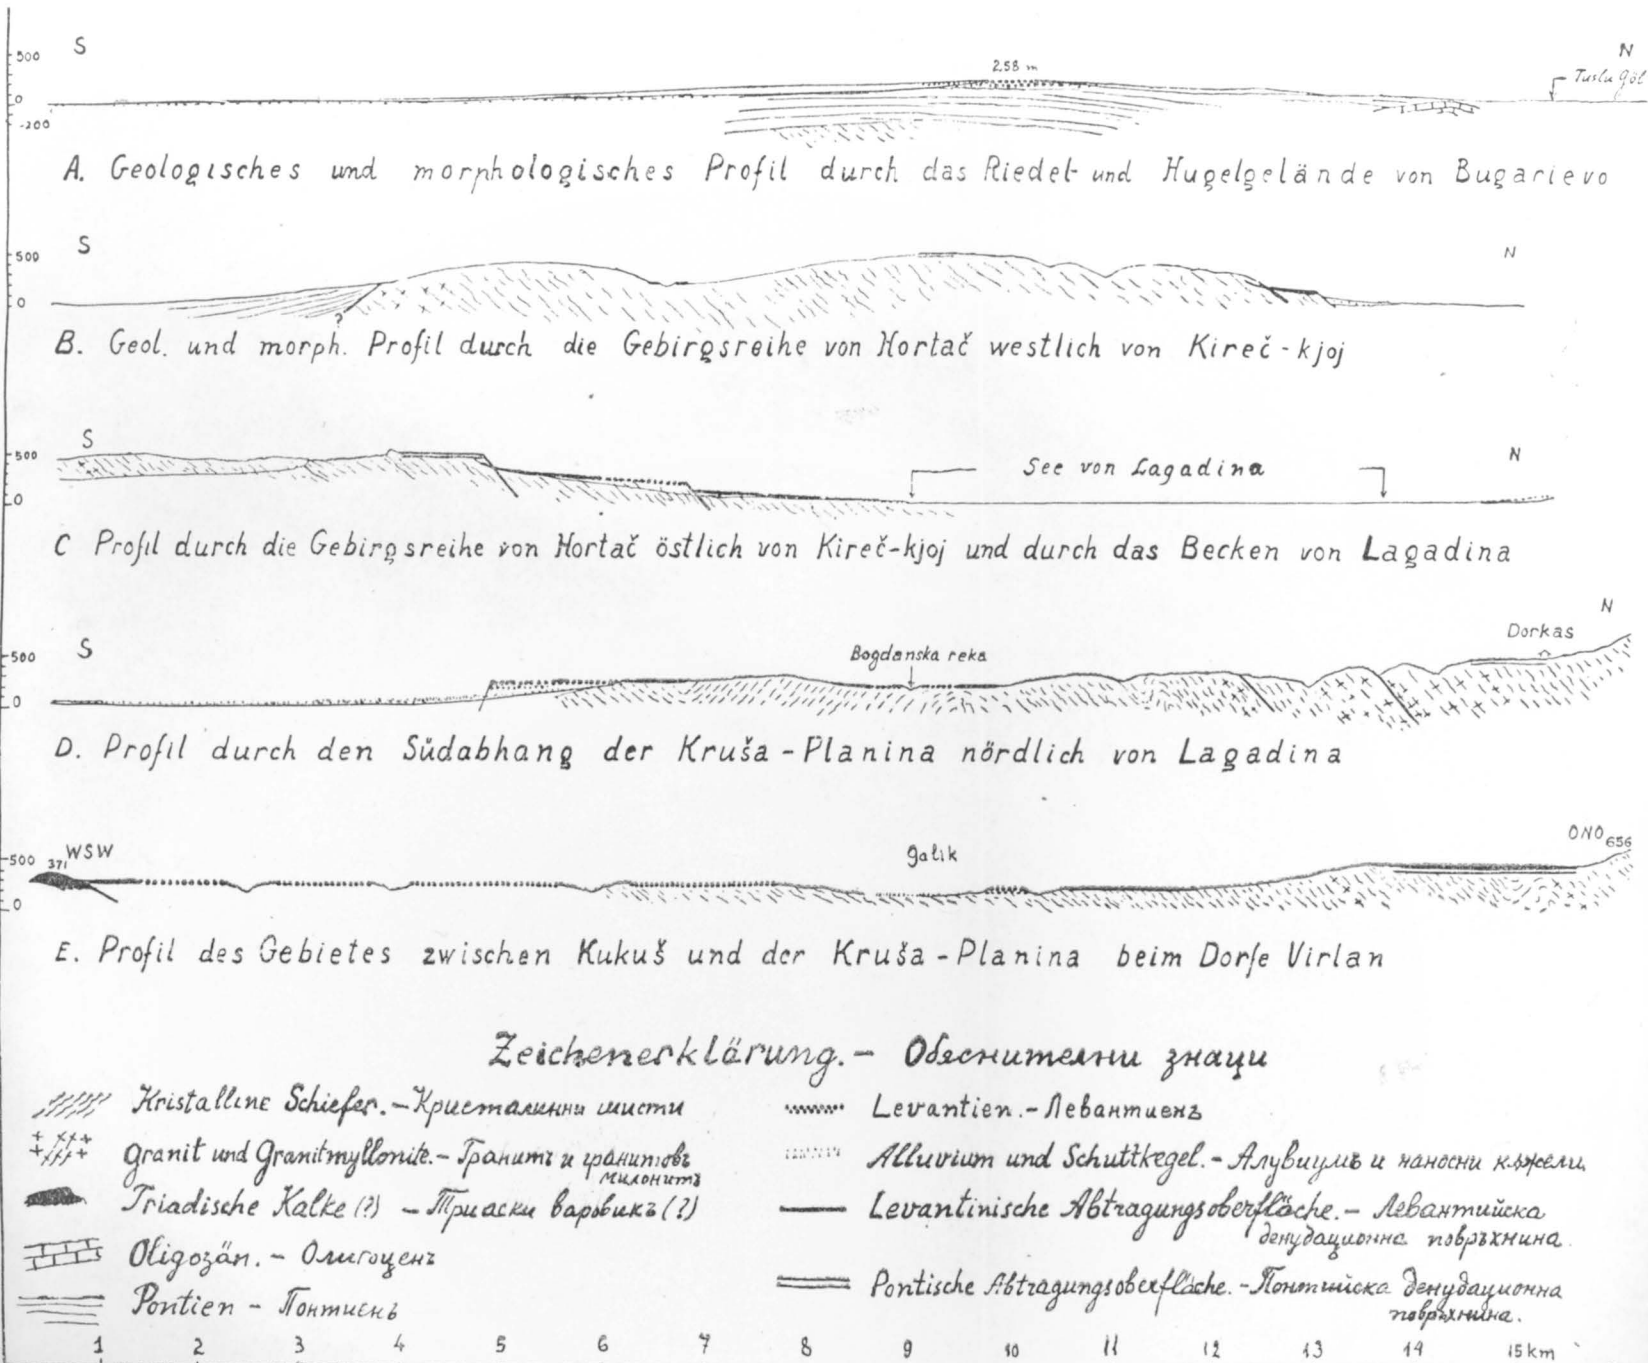 S N
500
0
-200
258 m
Tuslu Göl
A. Geologisches und morphologisches Profil durch das Riedel- und Hugelgelände von Bugarievo
S N
500
0
?
B. Geol. und morph. Profil durch die Gebirgsreihe von Hortač westlich von Kireč-kjoj
S N
500
0
See von Lagadina
C Profil durch die Gebirgsreihe von Hortač östlich von Kireč-kjoj und durch das Becken von Lagadina
S N
500
0
Bogdanska reka
Dorkas
D. Profil durch den Südabhang der Kruša-Planina nördlich von Lagadina
WSW ONO
500
0
371
656
Galik
E. Profil des Gebietes zwischen Kukuš und der Kruša-Planina beim Dorfe Virlan
Zeichenerklärung.- Обяснителни знаци
Kristalline Schiefer.-Кристалинни шисти
Granit und Granitmyllonite.-Гранитъ и гранитовъ милонитъ
Triadische Kalke (?) -Триаски варовикъ (?)
Oligozän.- Олигоценъ
Pontien - Понтиенъ
Levantien.-Левантиенъ
Alluvium und Schuttkegel.-Алувиумъ и наносни кѫжели
Levantinische Abtragungsoberfläche.- Левантийска
денудационна повръхнина.
Pontische Abtragungsoberfläche.-Понтийска денудационна
повръхнина.
1 2 3 4 5 6 7 8 9 10 11 12 13 14 15 km